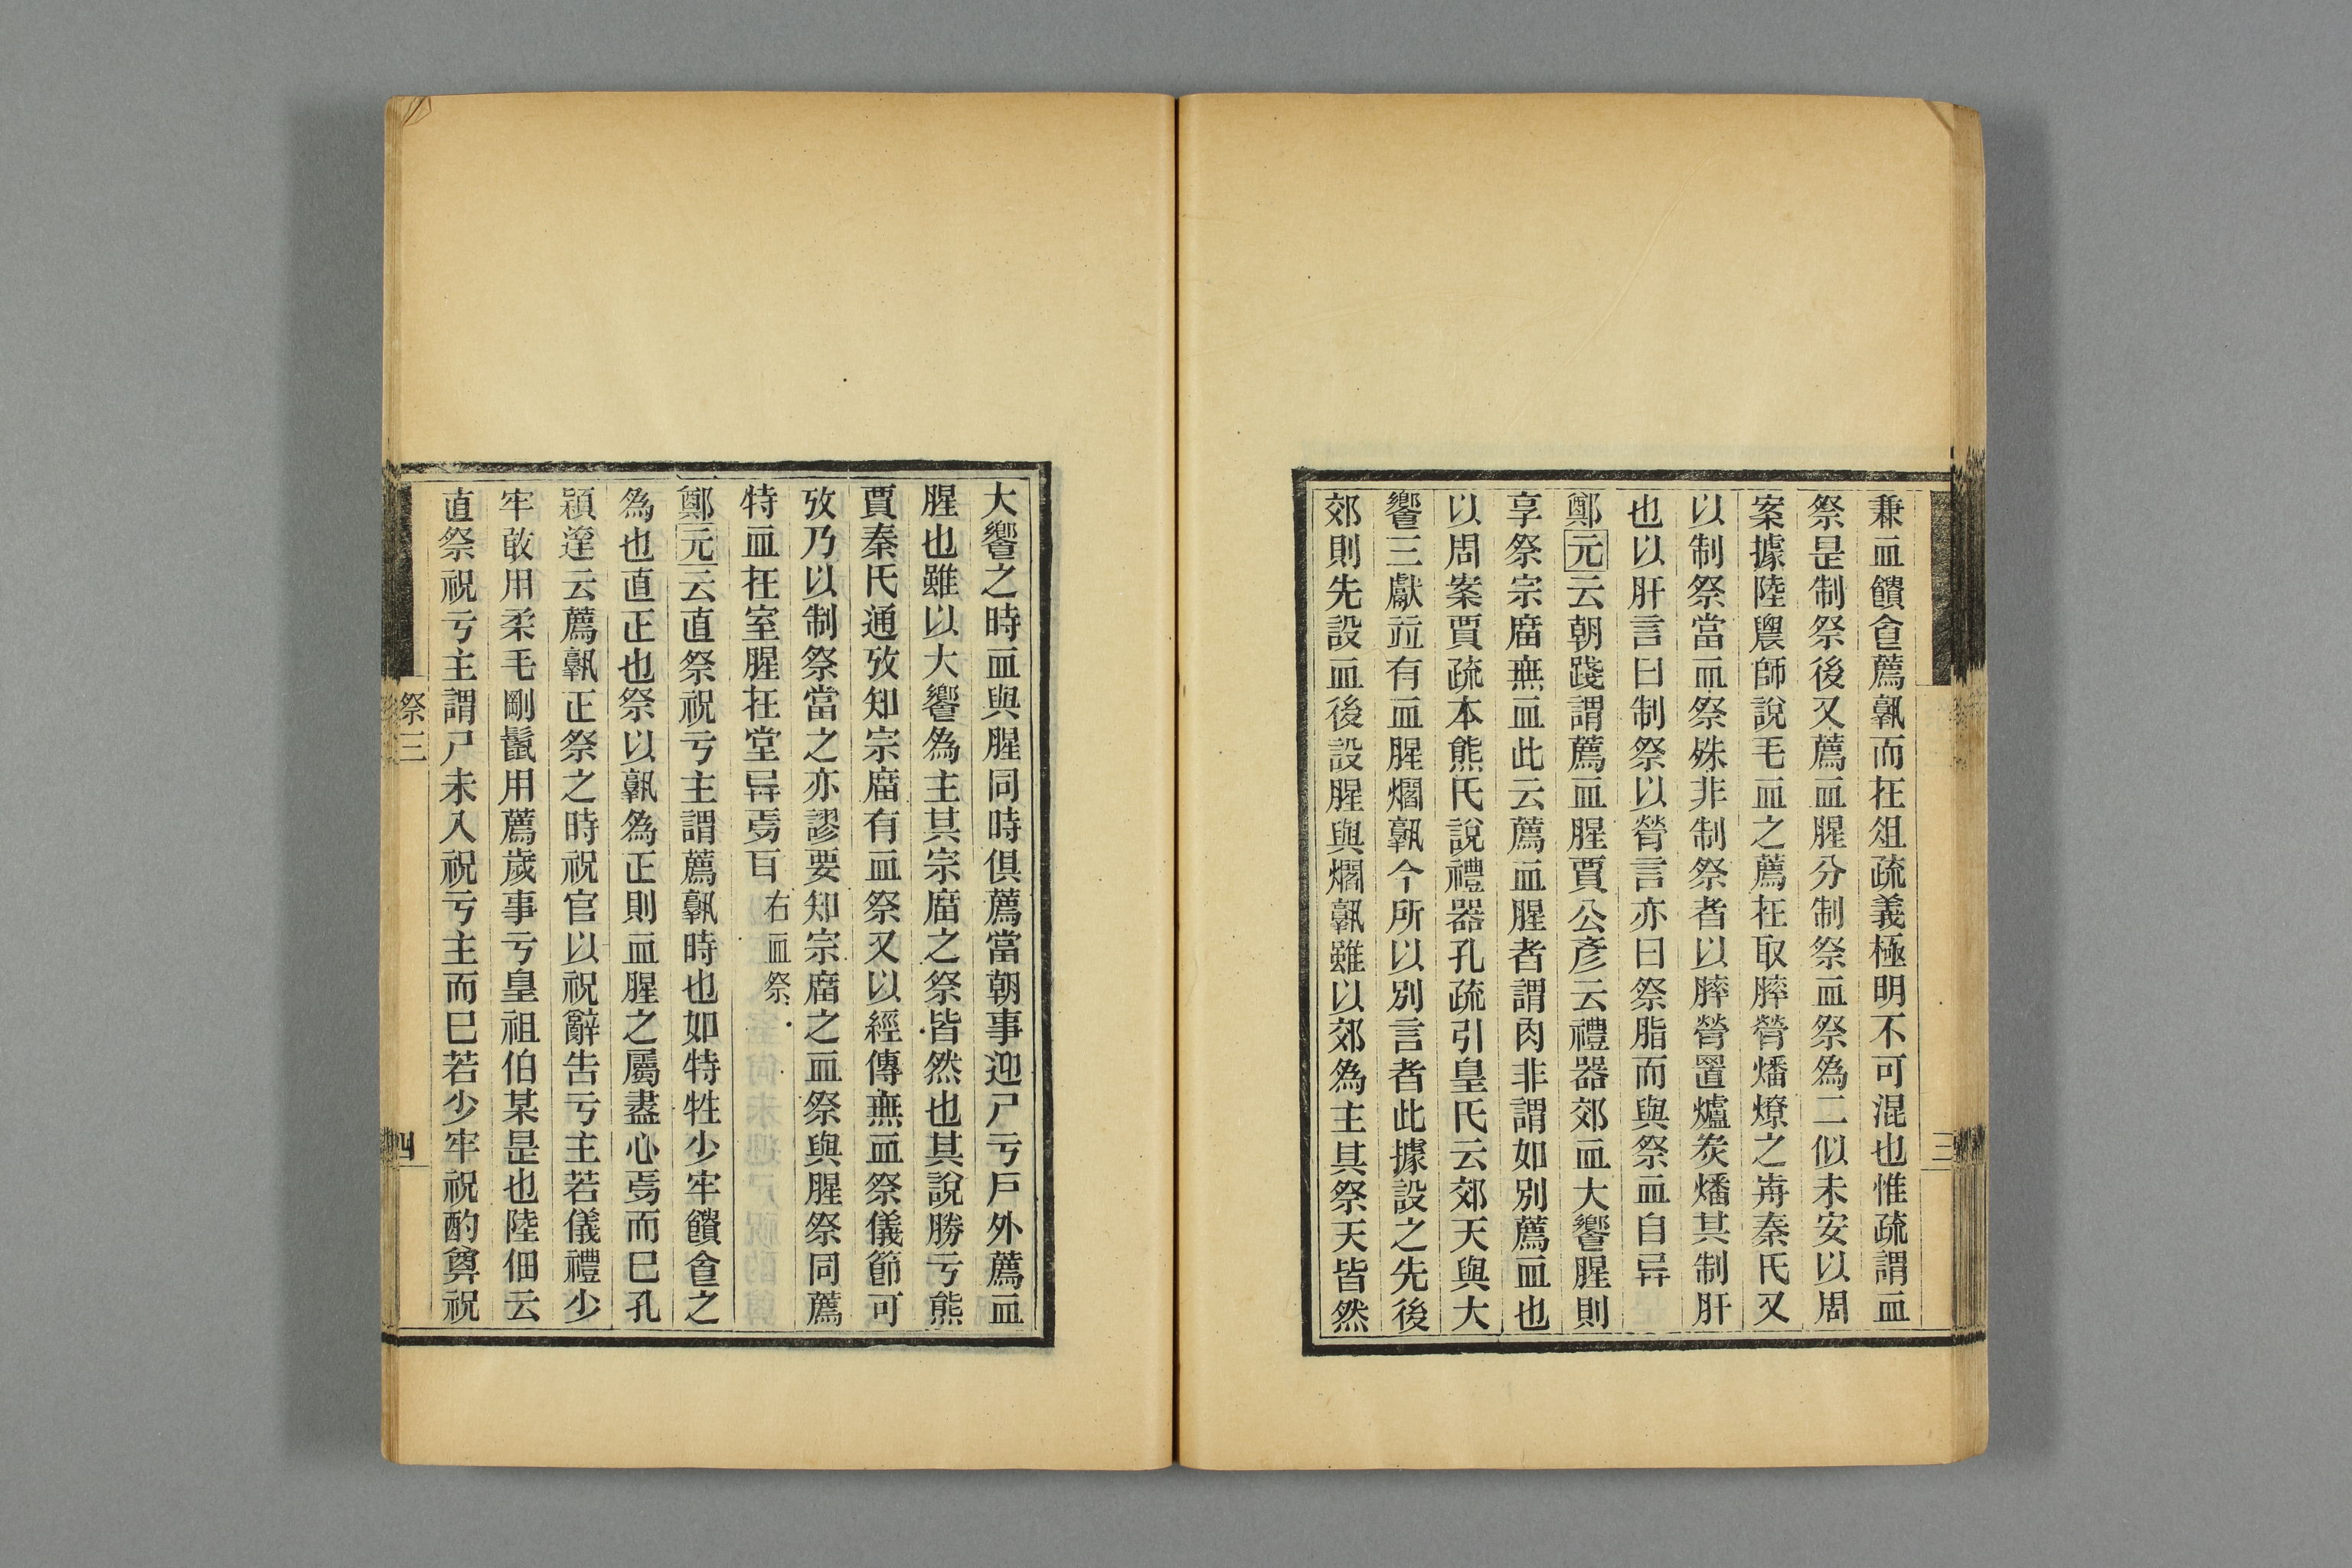 兼血饋㑹薦孰而在俎疏義極明不可混也惟疏謂血
祭是制祭後又薦血腥分制祭血祭為二似未安以周
案據陸農師說毛血之薦在取膟膋燔燎之歬秦氏又
以制祭當血祭殊非制祭者以膟膋置爐炭燔其制肝
也以肝言曰制祭以膋言亦曰祭脂而與祭血自异
鄭元云朝踐謂薦血腥賈公彥云禮器郊血大饗腥則
享祭宗庿無血此云薦血腥者謂肉非謂如別薦血也
以周案賈疏本熊氏說禮器孔疏引皇氏云郊天與大
饗三獻竝有血腥爓孰今所以別言者此據設之先後
郊則先設血後設腥與爓孰雖以郊為主其祭天皆然
三
大饗之時血與腥同時俱薦當朝事迎尸亏戶外薦血
腥也雖以大饗為主其宗庿之祭皆然也其說勝亏熊
賈秦氏通攷知宗庿有血祭又以經傳無血祭儀節可
攷乃以制祭當之亦謬要知宗庿之血祭與腥祭同薦
特血在室腥在堂异焉百 右血祭
鄭元云直祭祝亏主謂薦孰時也如特牲少牢饋㑹之
為也直正也祭以孰為正則血腥之屬盡心焉而已孔
穎達云薦孰正祭之時祝官以祝辭告亏主若儀禮少
牢敢用柔毛剛鬣用薦歲事亏皇祖伯某是也陸佃云
直祭祝亏主謂尸未入祝亏主而已若少牢祝酌奠祝
祭三
四